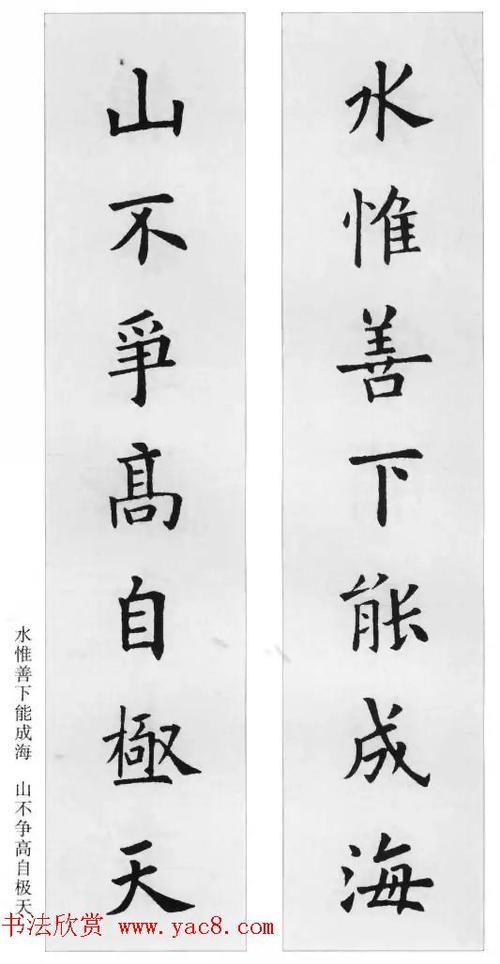 水惟善下能成海
山不爭髙自極天
水惟善下能成海 山不争高自极天
书法欣赏 www.yac8.com